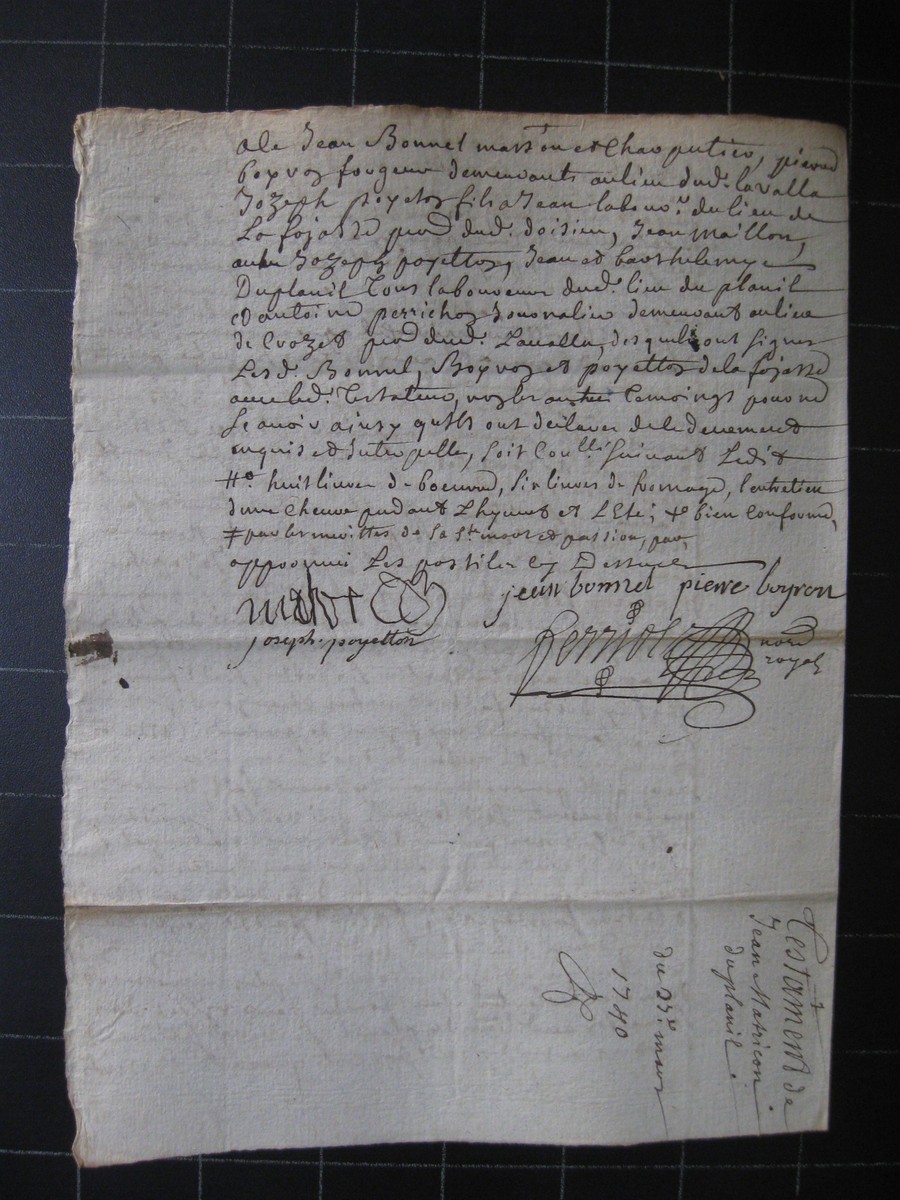 de Jean Bonnel masson et Charpantier, pierre
boyron forgeur demeurants au lieu dud. lavalla
Jozeph poyeton fils a Jean labour.r du lieu de
La fojasse dud. doisieu, Jean maillon,
autre Jozeph poyetton, Jean et barthelemy
Duplanil Tous laboureurs dud. lieu du planil
et antoine perrichon Journalier demeurant au lieu
de Crozet dud. Lavalla, desquels ont signes
Lesd. Bonnel, Boyron et poyetton de la fojasse
avec led. Testateur, non les autres temoings pour ne
Scavoir ainsy quils ont declarer de ce deuement
enquis et Interpelle, soit Suivant Ledit
huit livres de beurre, six livres de fromage, l'entretien
dune Chevre pendant Lhyvert et L'Eté; bien Conforme,
≠ par les merittes de sa Ste mort et passion, par,
approuvé Les postilles cy Dessus
jean bonnel pierre boyron
joseph poyetton
royal
Testament de
Jean Matricon
duplanil.
du mars
1740